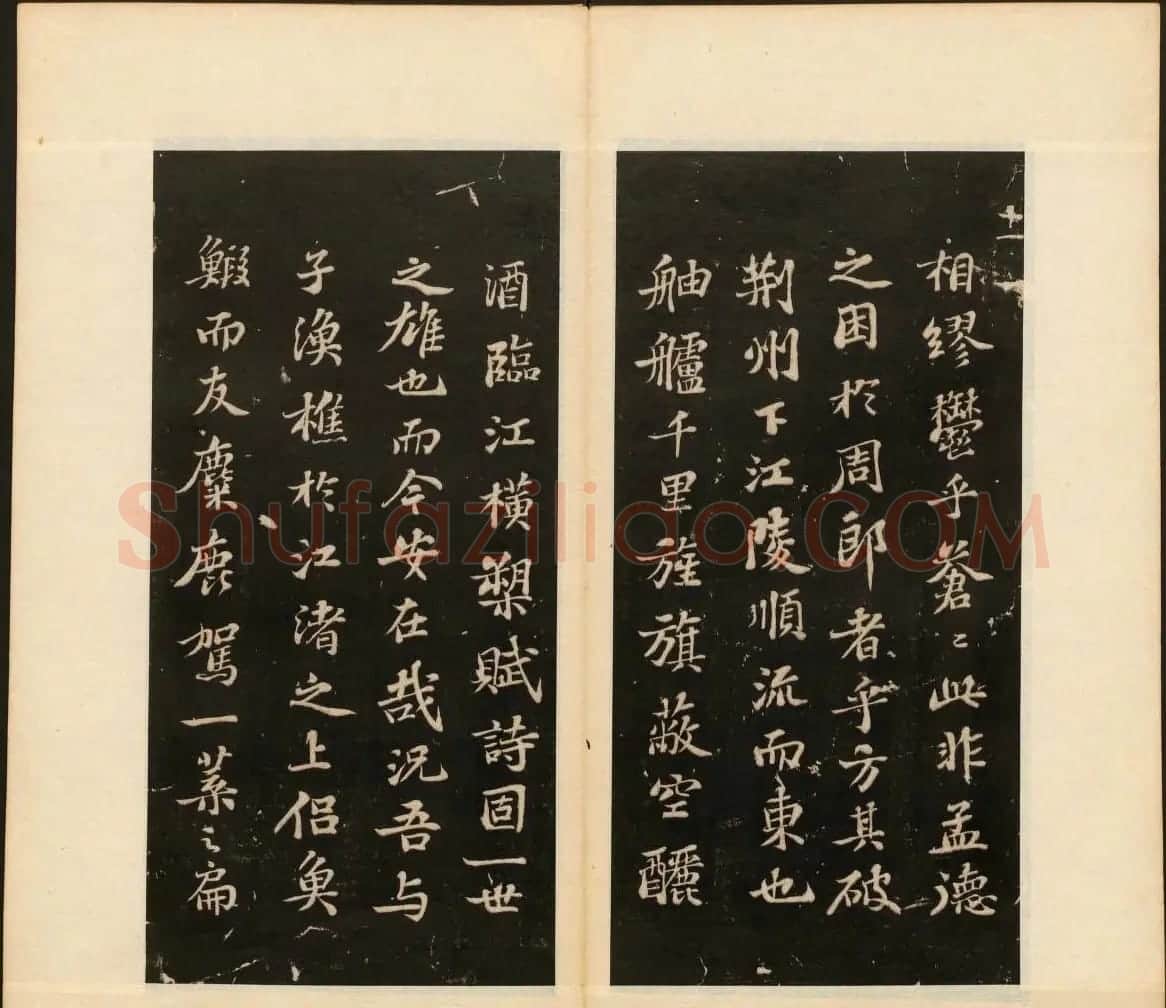 相繆鬱乎蒼〻此非孟德
之困於周郎者乎方其破
荆州下江陵順流而東也
舳艫千里旌旗蔽空釃
酒臨江橫槊賦詩固一世
之雄也而今安在哉況吾与
子漁樵於江渚之上侣魚
鰕而友麋鹿駕一葉之扁
十一
Shufaziliao.COM